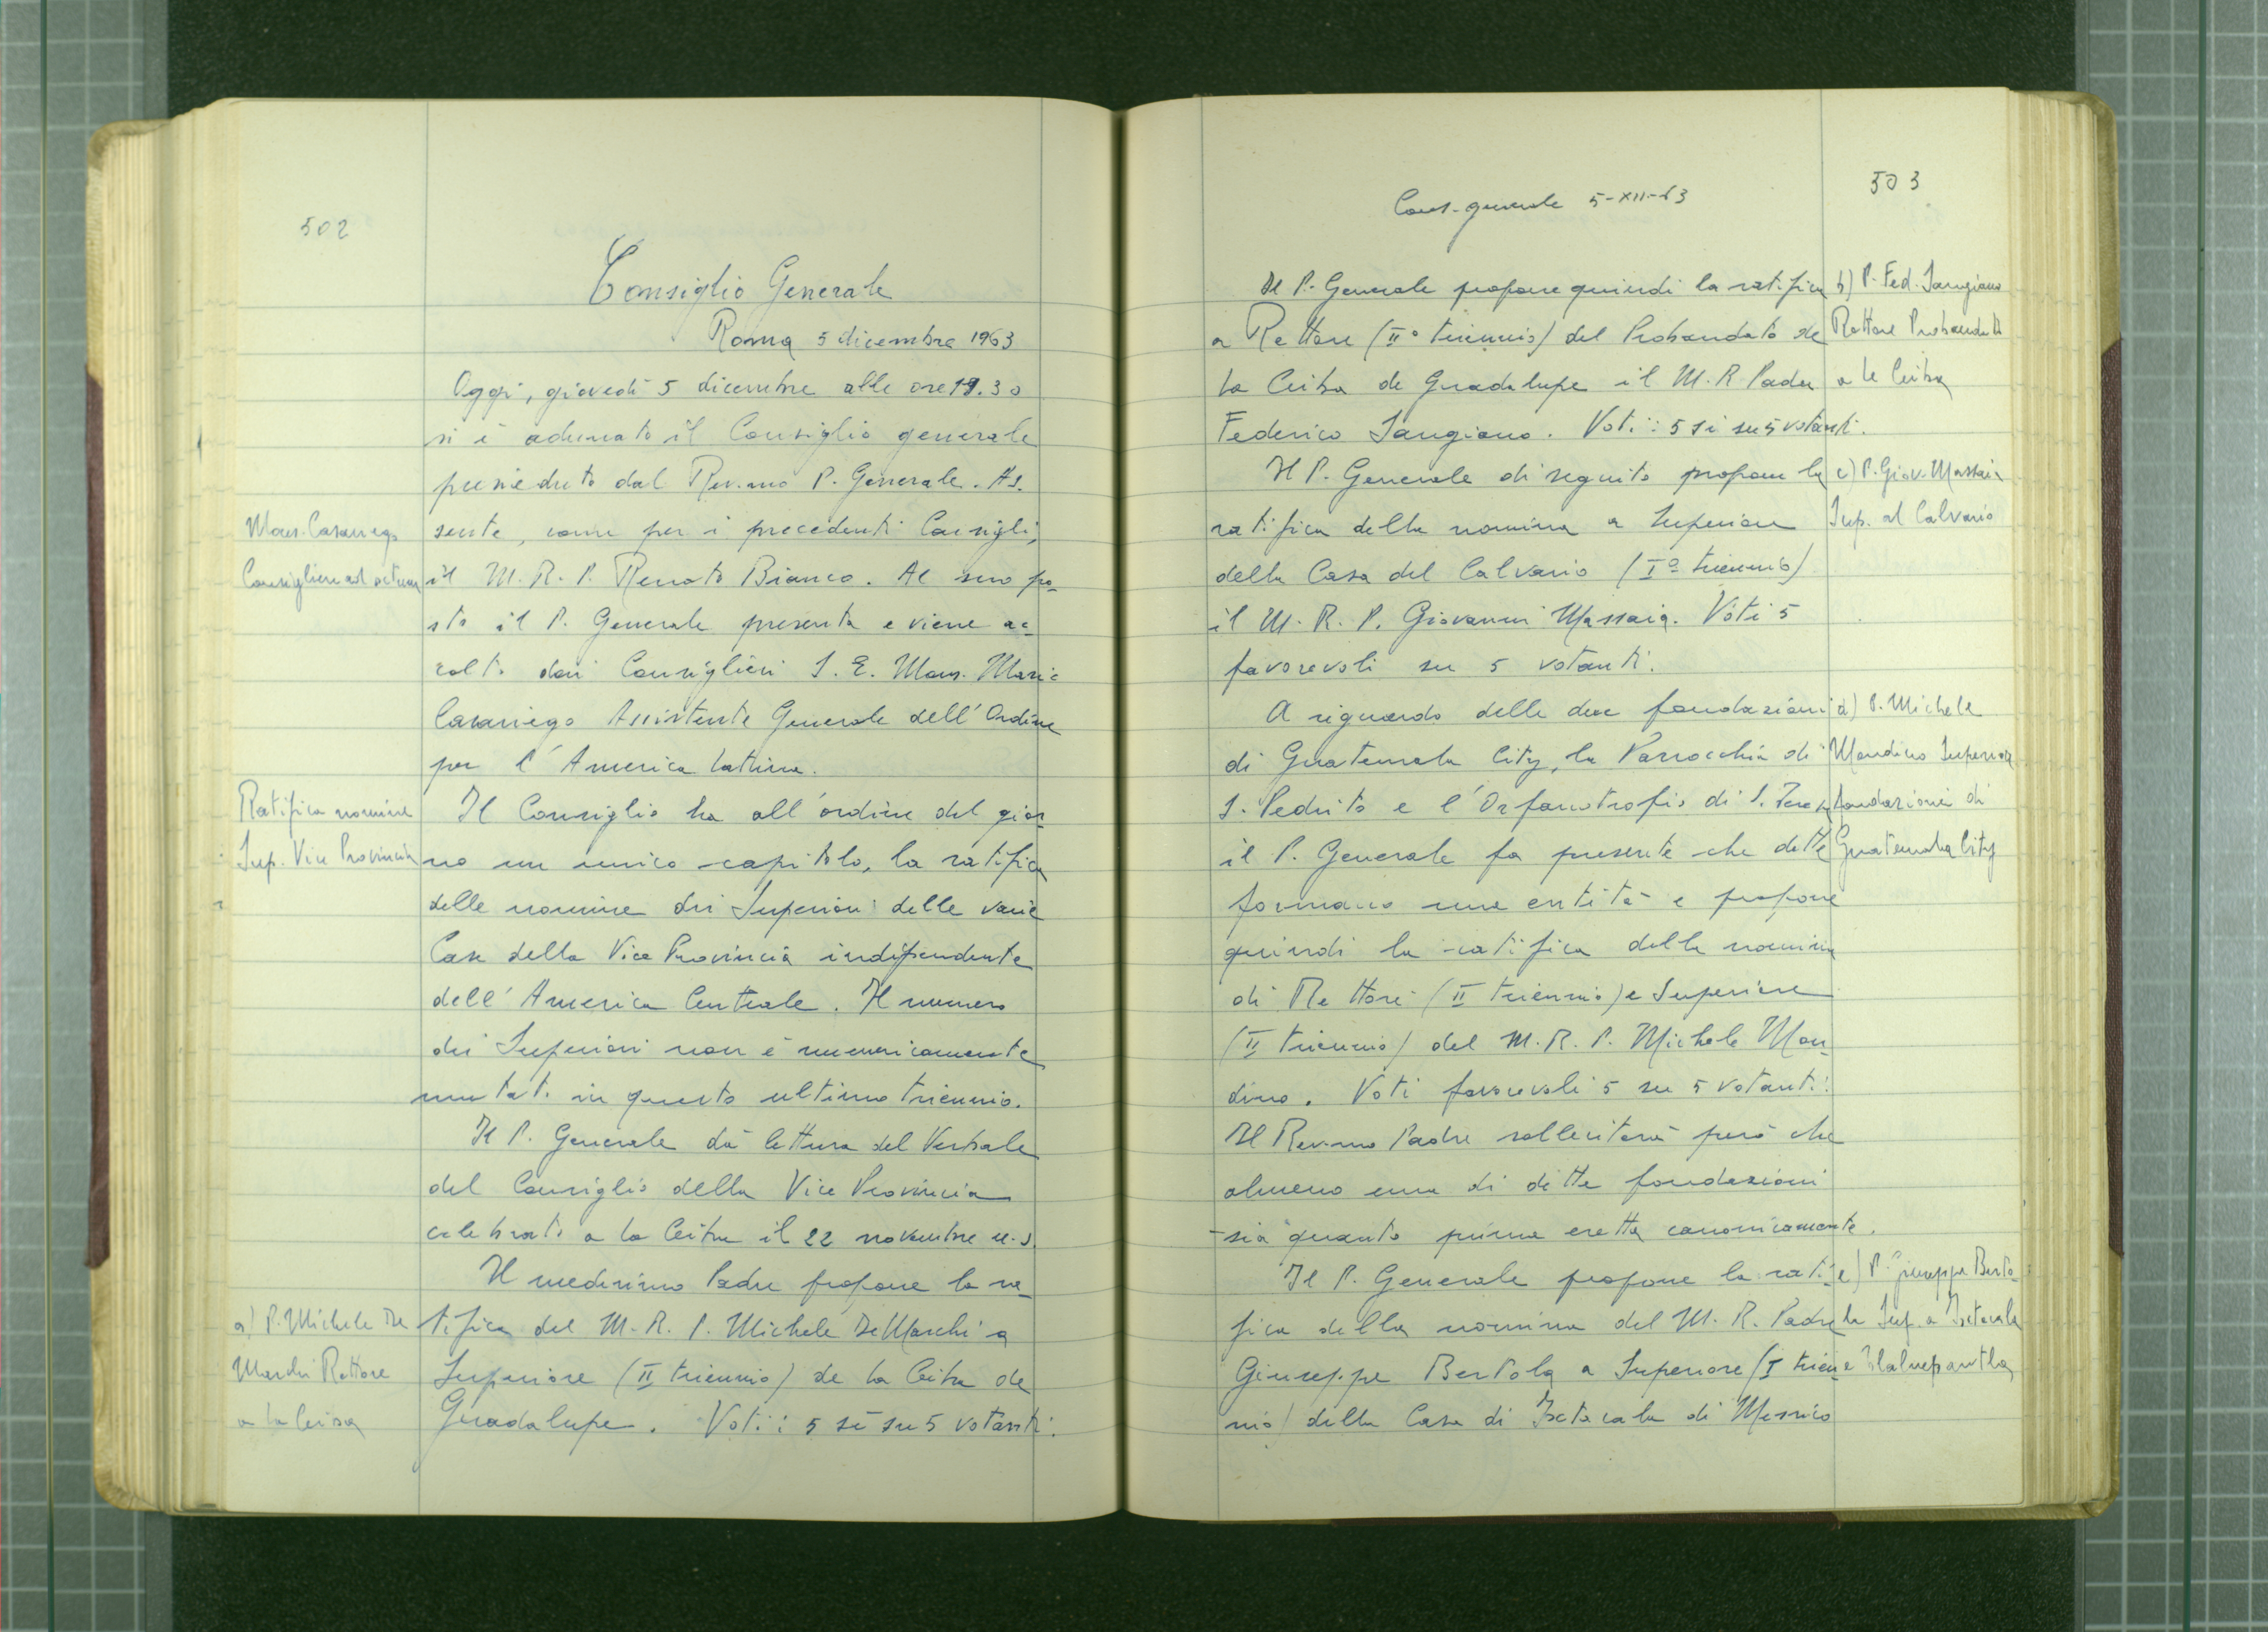 502
Consiglio Generale
Roma 5 dicembre 1963
Oggi, giovedì 5 dicembre alle ore 19.30
si è adunato il Consiglio generale
presieduto dal Rev.mo P. Generale. As-
sente, come per i precedenti Consigli,
il M. R. P. Renato Bianco. Al suo po-
sto il P. Generale presenta e viene ac-
colto dai Consiglieri S. E. Mons. Mario
Casariego Assistente Generale dell'Ordine
per l'America latina.
Mons. Casariego
Consigliere ad actum
Il Consiglio ha all'ordine del gior-
no un unico capitolo, la ratifica
delle nomine dei Superiori delle varie
Case della Vice Provincia indipendente
dell'America Centrale. Il numero
dei Superiori non è numericamente
mutato in questo ultimo triennio.
Ratifica nomine
Sup. Vice Provincia
Il P. Generale dà lettura del Verbale
del Consiglio della Vice Provincia
celebrato a la Ceiba il 22 novembre u.s.
Il medesimo Padre propone la ra-
tifica del M. R. P. Michele De Marchi a
Superiore (II triennio) de la Ceiba de
Guadalupe. Voti: 5 sì su 5 votanti.
a) P. Michele De
Marchi Rettore
a la Ceiba
503
Cons. generale 5-XII-63
Il P. Generale propone quindi la ratifica
a Rettore (II° triennio) del Probandato de
la Ceiba de Guadalupe il M. R. Padre
Federico Sangiano. Voti: 5 sì su 5 votanti.
b) P. Fed. Sangiano
Rettore Probandato
a la Ceiba
Il P. Generale di seguito propone la
ratifica della nomina a Superiore
della Casa del Calvario (I° triennio)
il M. R. P. Giovanni Massaia. Voti 5
favorevoli su 5 votanti.
c) P. Giov. Massaia
Sup. al Calvario
A riguardo delle due fondazioni
di Guatemala City, la Parrocchia di
S. Pedrito e l'Orfanotrofio di S. Teresa
il P. Generale fa presente che dette
formano una entità e propone
quindi la ratifica della nomina
di Rettore (II triennio) e Superiore
(II triennio) del M. R. P. Michele Mon-
dino. Voti favorevoli 5 su 5 votanti.
Il Rev.mo Padre solleciterà però che
almeno una di dette fondazioni
sia quanto prima eretta canonicamente.
d) P. Michele
Mondino Superiore
fondazioni di
Guatemala City
Il P. Generale propone la rati-
fica della nomina del M. R. Padre
Giuseppe Bertola a Superiore (I trien-
nio) della Casa di Ixtacala di Messico
e) P. Giuseppe Berto-
la Sup. a Ixtacala
e Tlalnepantla